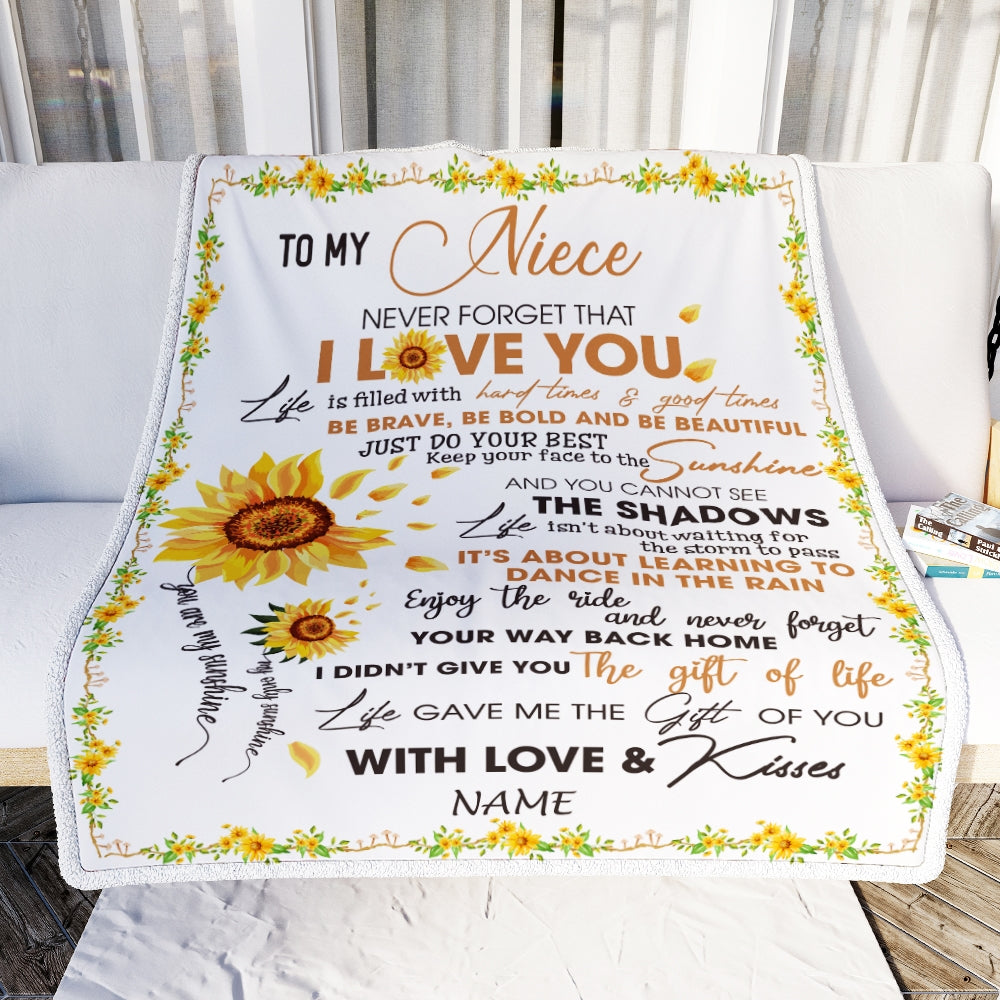 TO MY Niece
NEVER FORGET THAT
I LOVE YOU
Life is filled with hard times & good times
BE BRAVE, BE BOLD AND BE BEAUTIFUL
JUST DO YOUR BEST
Keep your face to the Sunshine
AND YOU CANNOT SEE
THE SHADOWS
Life isn't about waiting for
the storm to pass
IT'S ABOUT LEARNING TO
DANCE IN THE RAIN
Enjoy the ride
and never forget
YOUR WAY BACK HOME
I DIDN'T GIVE YOU The gift of life
Life GAVE ME THE Gift OF YOU
WITH LOVE & Kisses
NAME
you are my sunshine
my only sunshine
The
Calling
Paul